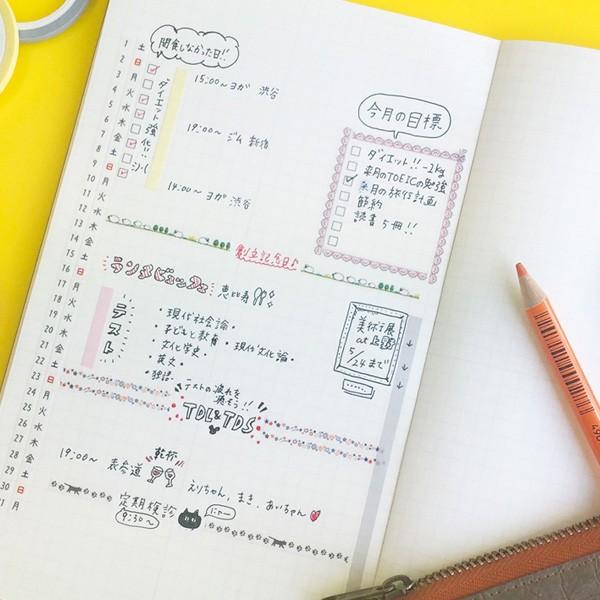 間食しなかった日!!
1 土
2 日
3 月
4 火
5 水
6 木
7 金
8 土
9 日
10 月
11 火
12 水
13 木
14 金
15 土
16 日
17 月
18 火
19 水
20 木
21 金
22 土
23 日
24 月
25 火
26 水
27 木
28 金
29 土
30 日
31 月
ダイエット強化!!
15:00〜ヨガ 渋谷
19:00〜ジム 新宿
14:00〜ヨガ 渋谷
今月の目標
ダイエット!! -2kg
来月のTOEICの勉強
来月の旅行計画
節約
読書5冊!!
創立記念日♪
ランチビュッフェ 恵比寿
テスト
・現代社会論
・子どもと教育
・現代文化論
・文化学史
・英文
・独語
美術展
at
5/24まで
テストの疲れを
癒そう!!
TDL&TDS
乾杯
19:00〜 表参道
えりちゃん、まき、あいちゃん
定期検診
9:30〜
ニャー
490